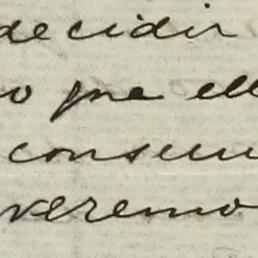 decidir
o que ell
consu
veremo